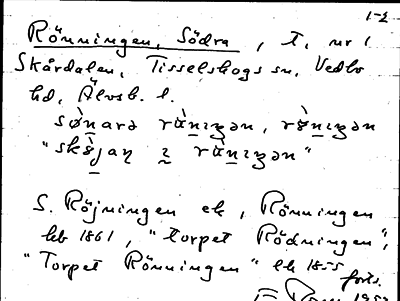 1-2
Rönningen, Södra, t. nr 1
Skårdalen, Tisselskogs sn, Vedbo
hd, Älvsb. l.
sø̀narə rä̀nɪŋən, rɞ̀nɪŋən
"skɞ̀jaɳ ɪ rä̀nɪŋən"
S. Röjningen ek, Rönningen
hb 1861, "torpet Rödningen",
"Torpet Rönningen" hb 1855
forts.